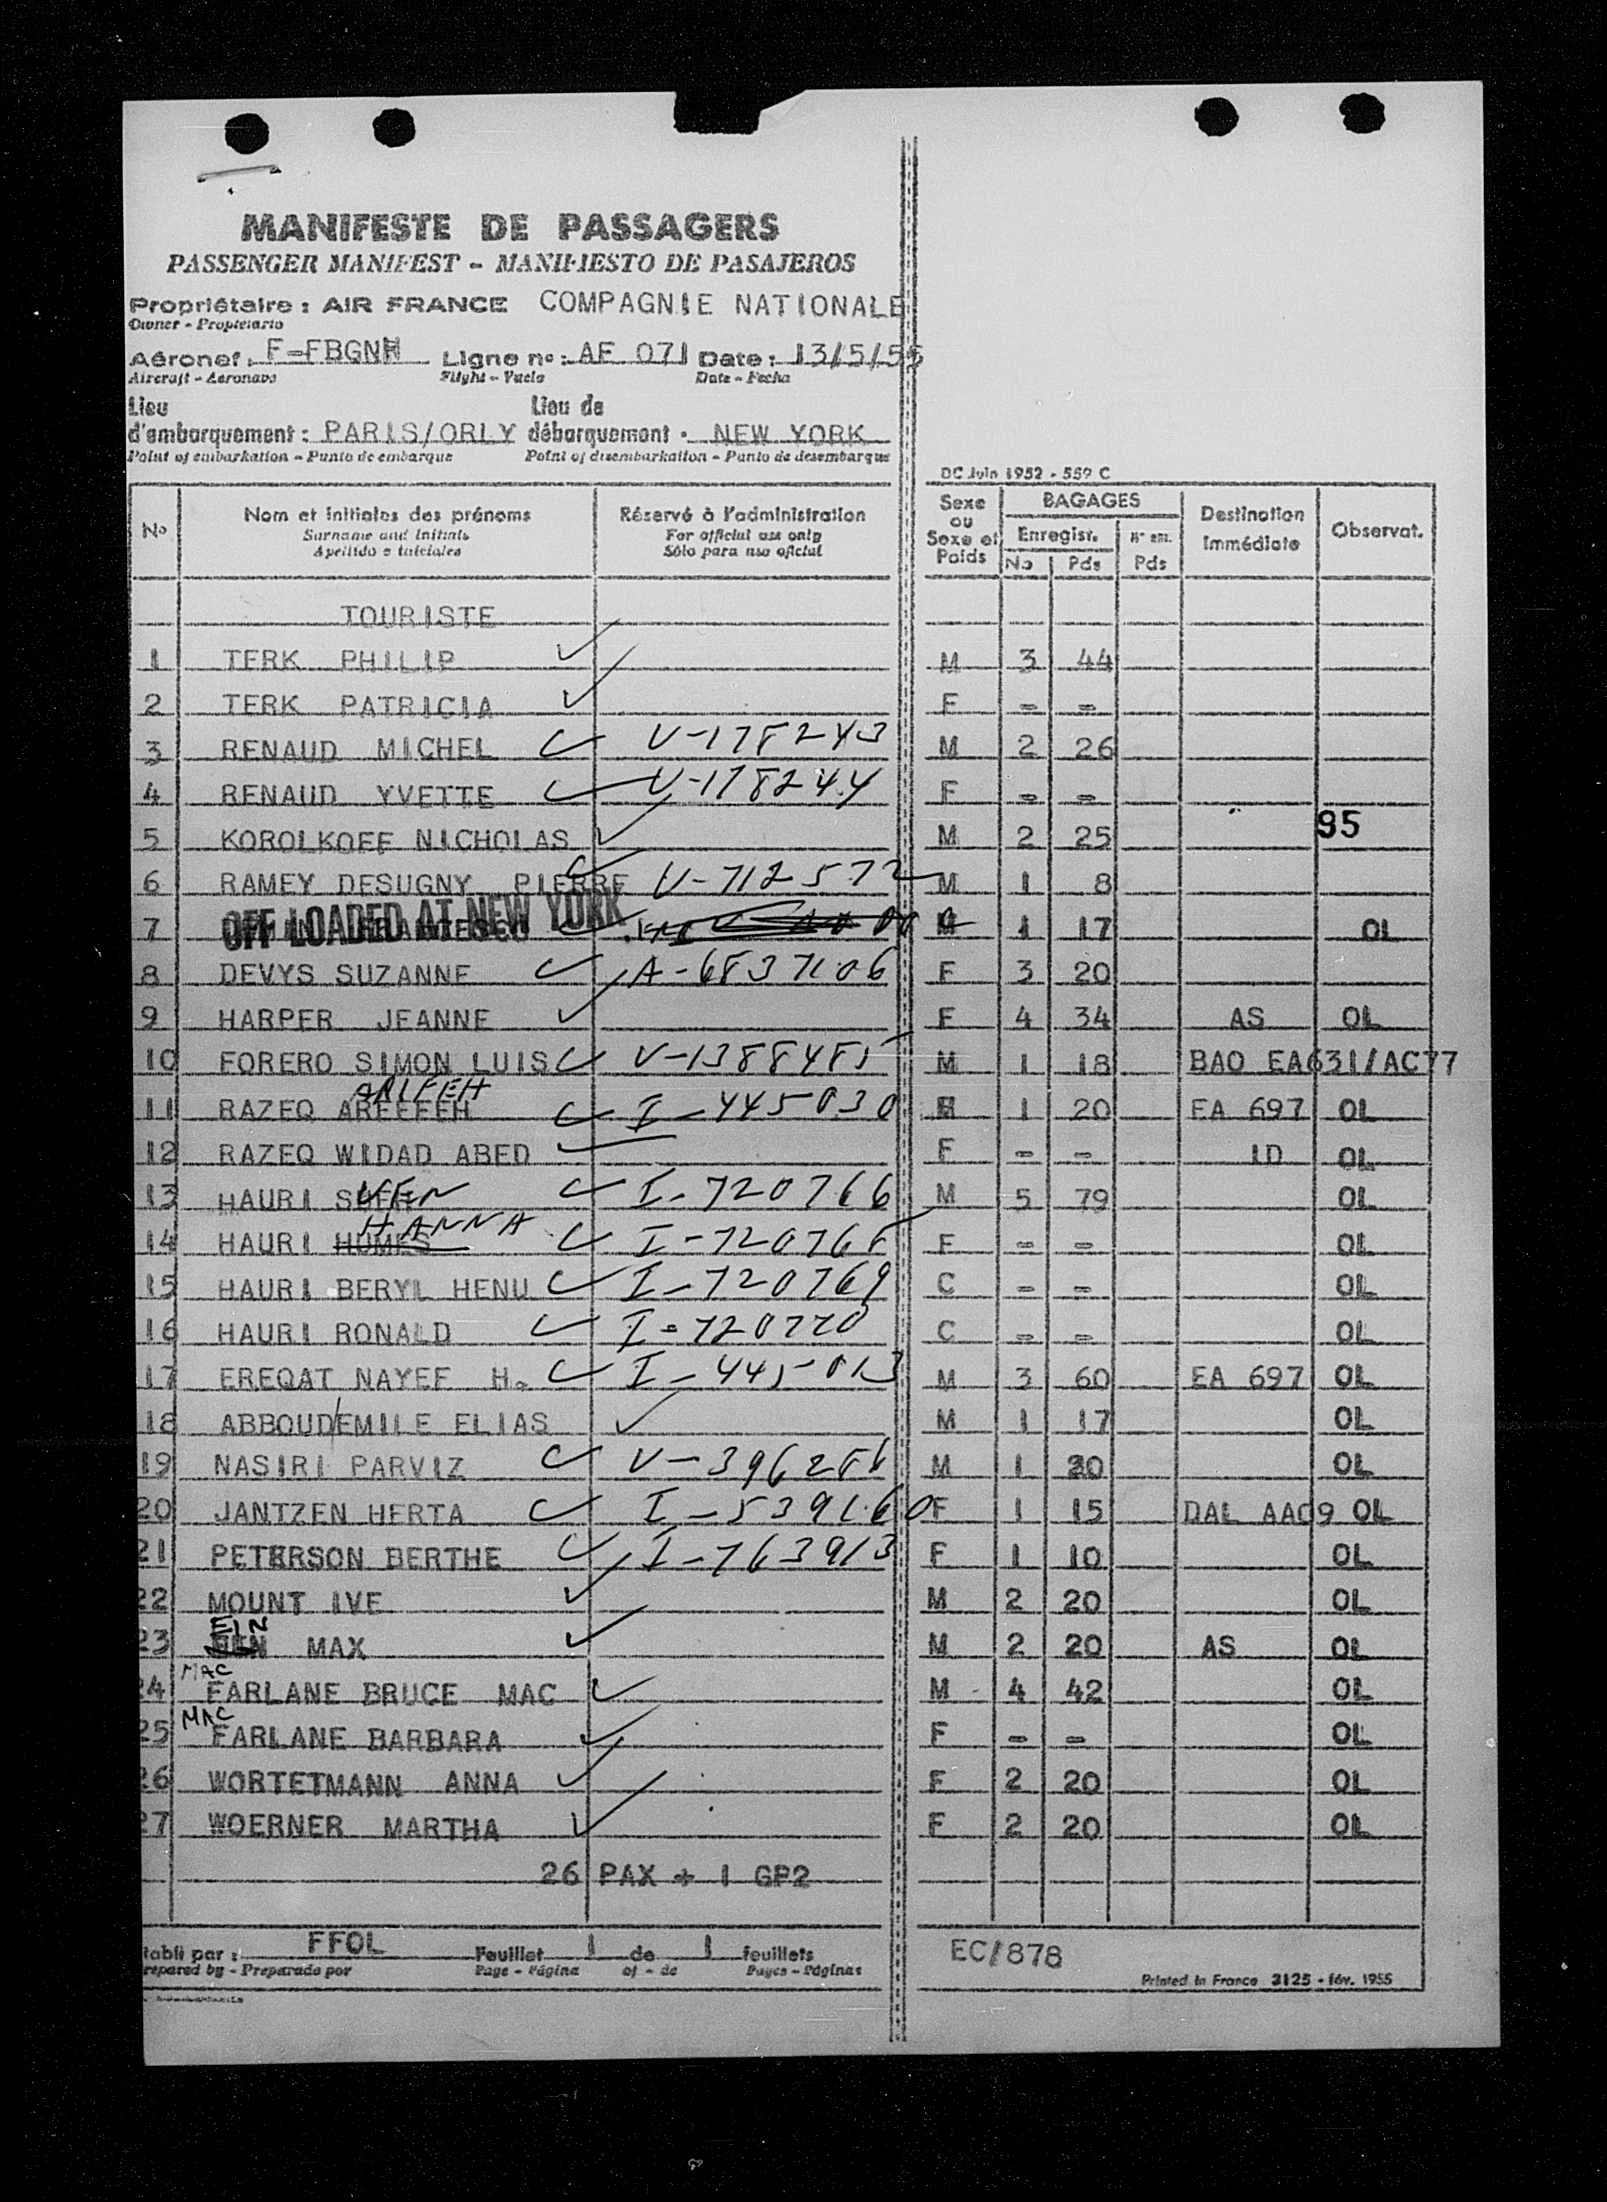 MANIFESTE DE PASSAGERS
PASSENGER MANIFEST - MANIFIESTO DE PASAJEROS
Propriétaire : AIR FRANCE COMPAGNIE NATIONALE
Owner - Propietario
Aéronef : F-FBGNH Ligne n° : AF 071 Date : 13/5/55
Aircraft - Aeronave Flight - Vuelo Date - Fecha
Lieu Lieu de
d'embarquement : PARIS/ORLY débarquement : NEW YORK
Point of embarkation - Punto de embarque Point of disembarkation - Punto de desembarque
DC Juin 1952 - 559 C
No Nom et initiales des prénoms Réservé à l'administration Sexe ou Sexe et Poids BAGAGES Destination Immédiate Observat.
Surname and initials For official use only Enregistr. N° enr.
Apellido e iniciales Sólo para uso oficial No Pds Pds
TOURISTE
1 TERK PHILIP M 3 44
2 TERK PATRICIA F - -
3 RENAUD MICHEL V-178243 M 2 26
4 RENAUD YVETTE V-178244 F - -
5 KOROLKOFF NICHOLAS M 2 25 95
6 RAMEY DESUGNY PIERRE V-712572 M 1 8
7 OFF LOADED AT NEW YORK M 1 17 OL
8 DEVYS SUZANNE A-6837106 F 3 20
9 HARPER JEANNE F 4 34 AS OL
10 FORERO SIMON LUIS V-1388485 M 1 18 BAO EA631/AC77
ARIFEH
11 RAZEQ AREEFEH I-445030 1 20 EA 697 OL
12 RAZEQ WIDAD ABED F - - ID OL
13 HAURI I-720766 M 5 79 OL
HANNA
14 HAURI HUMES I-720768 F - - OL
15 HAURI BERYL HENU I-720769 C - - OL
16 HAURI RONALD I-720770 C - - OL
17 EREQAT NAYEF H. I-445013 M 3 60 EA 697 OL
18 ABBOUD/EMILE ELIAS M 1 17 OL
19 NASIRI PARVIZ V-396286 M 1 20 OL
20 JANTZEN HERTA I-539160 F 1 15 DAL AA09 OL
21 PETERSON BERTHE I-763913 F 1 10 OL
22 MOUNT IVE M 2 20 OL
EIN
23 MAX M 2 20 AS OL
MAC
24 FARLANE BRUCE MAC M 4 42 OL
MAC
25 FARLANE BARBARA F - - OL
26 WORTETMANN ANNA F 2 20 OL
27 WOERNER MARTHA F 2 20 OL
26 PAX + 1 GP2
tabli par : FFOL Feuillet 1 de 1 feuillets EC/878
repared by - Preparado por Page - Página of - de Pages - Páginas
Printed in France 3125 - fév. 1955